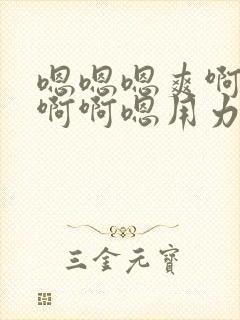 嗯嗯嗯爽啊
啊啊嗯用力
三金元寶